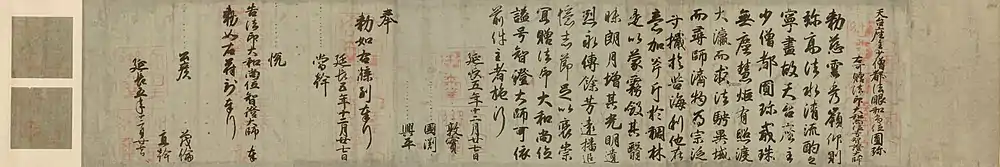 天台座主少僧都法眼和尚位圓珍
右可贈法印大和尚位号智證大師
勅慈雲秀嶺仰則
弥高法水清流酌之
寧盡故天台座主
少僧都圓珍戒珠
無塵慧炬有照渡
大瀛而求法騁異域
而尋師濟物為宗泛
寸檝於苦海利他在
意加斧斤於稠林
是以蒙霧斂其翳
昧朗月増其光明遺
烈永傳餘芳遠播追
憶志節足以褒崇
冝贈法印大和尚位
謚号智證大師可依
前件主者施行
延長五年十二月廿七日
敦實
國渕
興平
奉
勅如右牒到奉行
延長五年十二月廿七日
當幹
悦
告法印大和尚位智證大師 奉
勅如右苻到奉行
茂倫
真幹
延長五年十二月廿七日